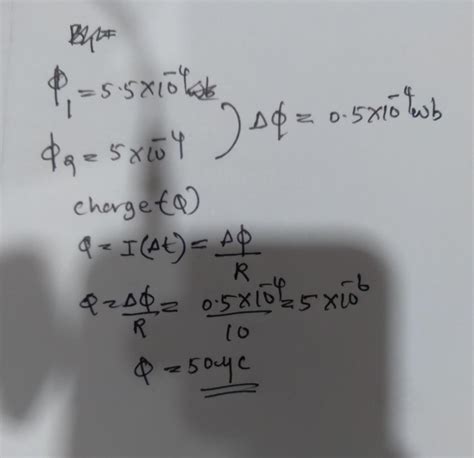 ϕ₁ = 5.5×10⁻⁴ wb
ϕ₂ = 5×10⁻⁴ ) Δϕ = 0.5×10⁻⁴ wb
charge (Q)
Q = I(Δt) = Δϕ/R
Q = Δϕ/R = 0.5×10⁻⁴/10 = 5×10⁻⁶
Q = 50μC